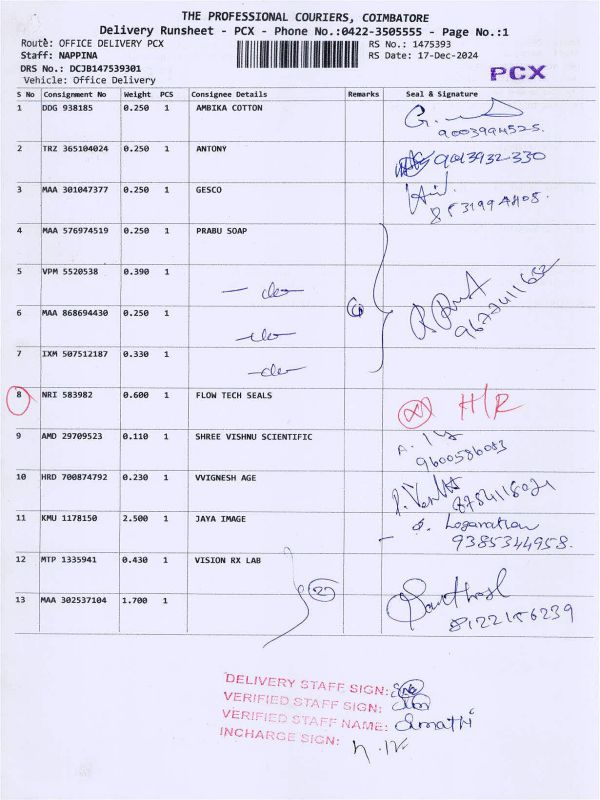 THE PROFESSIONAL COURIERS, COIMBATORE
Delivery Runsheet - PCX - Phone No.:0422-3505555 - Page No.:1
Route: OFFICE DELIVERY PCX RS No.: 1475393
Staff: NAPPINA RS Date: 17-Dec-2024
DRS No.: DCJB147539301
Vehicle: Office Delivery
PCX
S No Consignment No Weight PCS Consignee Details Remarks Seal & Signature
1 DDG 938185 0.250 1 AMBIKA COTTON
9003994525.
2 TRZ 365104024 0.250 1 ANTONY
3 MAA 301047377 0.250 1 GESCO
4 MAA 576974519 0.250 1 PRABU SOAP
5 VPM 5520538 0.390 1 - do -
6 MAA 868694430 0.250 1 - do -
7 IXM 507512187 0.330 1 - do -
8 NRI 583982 0.600 1 FLOW TECH SEALS H/R
9 AMD 29709523 0.110 1 SHREE VISHNU SCIENTIFIC
9600586083
10 HRD 700874792 0.230 1 VVIGNESH AGE
11 KMU 1178150 2.500 1 JAYA IMAGE
9385344958.
12 MTP 1335941 0.430 1 VISION RX LAB
2
13 MAA 302537104 1.700 1
8122156239
DELIVERY STAFF SIGN:
VERIFIED STAFF SIGN:
VERIFIED STAFF NAME:
INCHARGE SIGN: